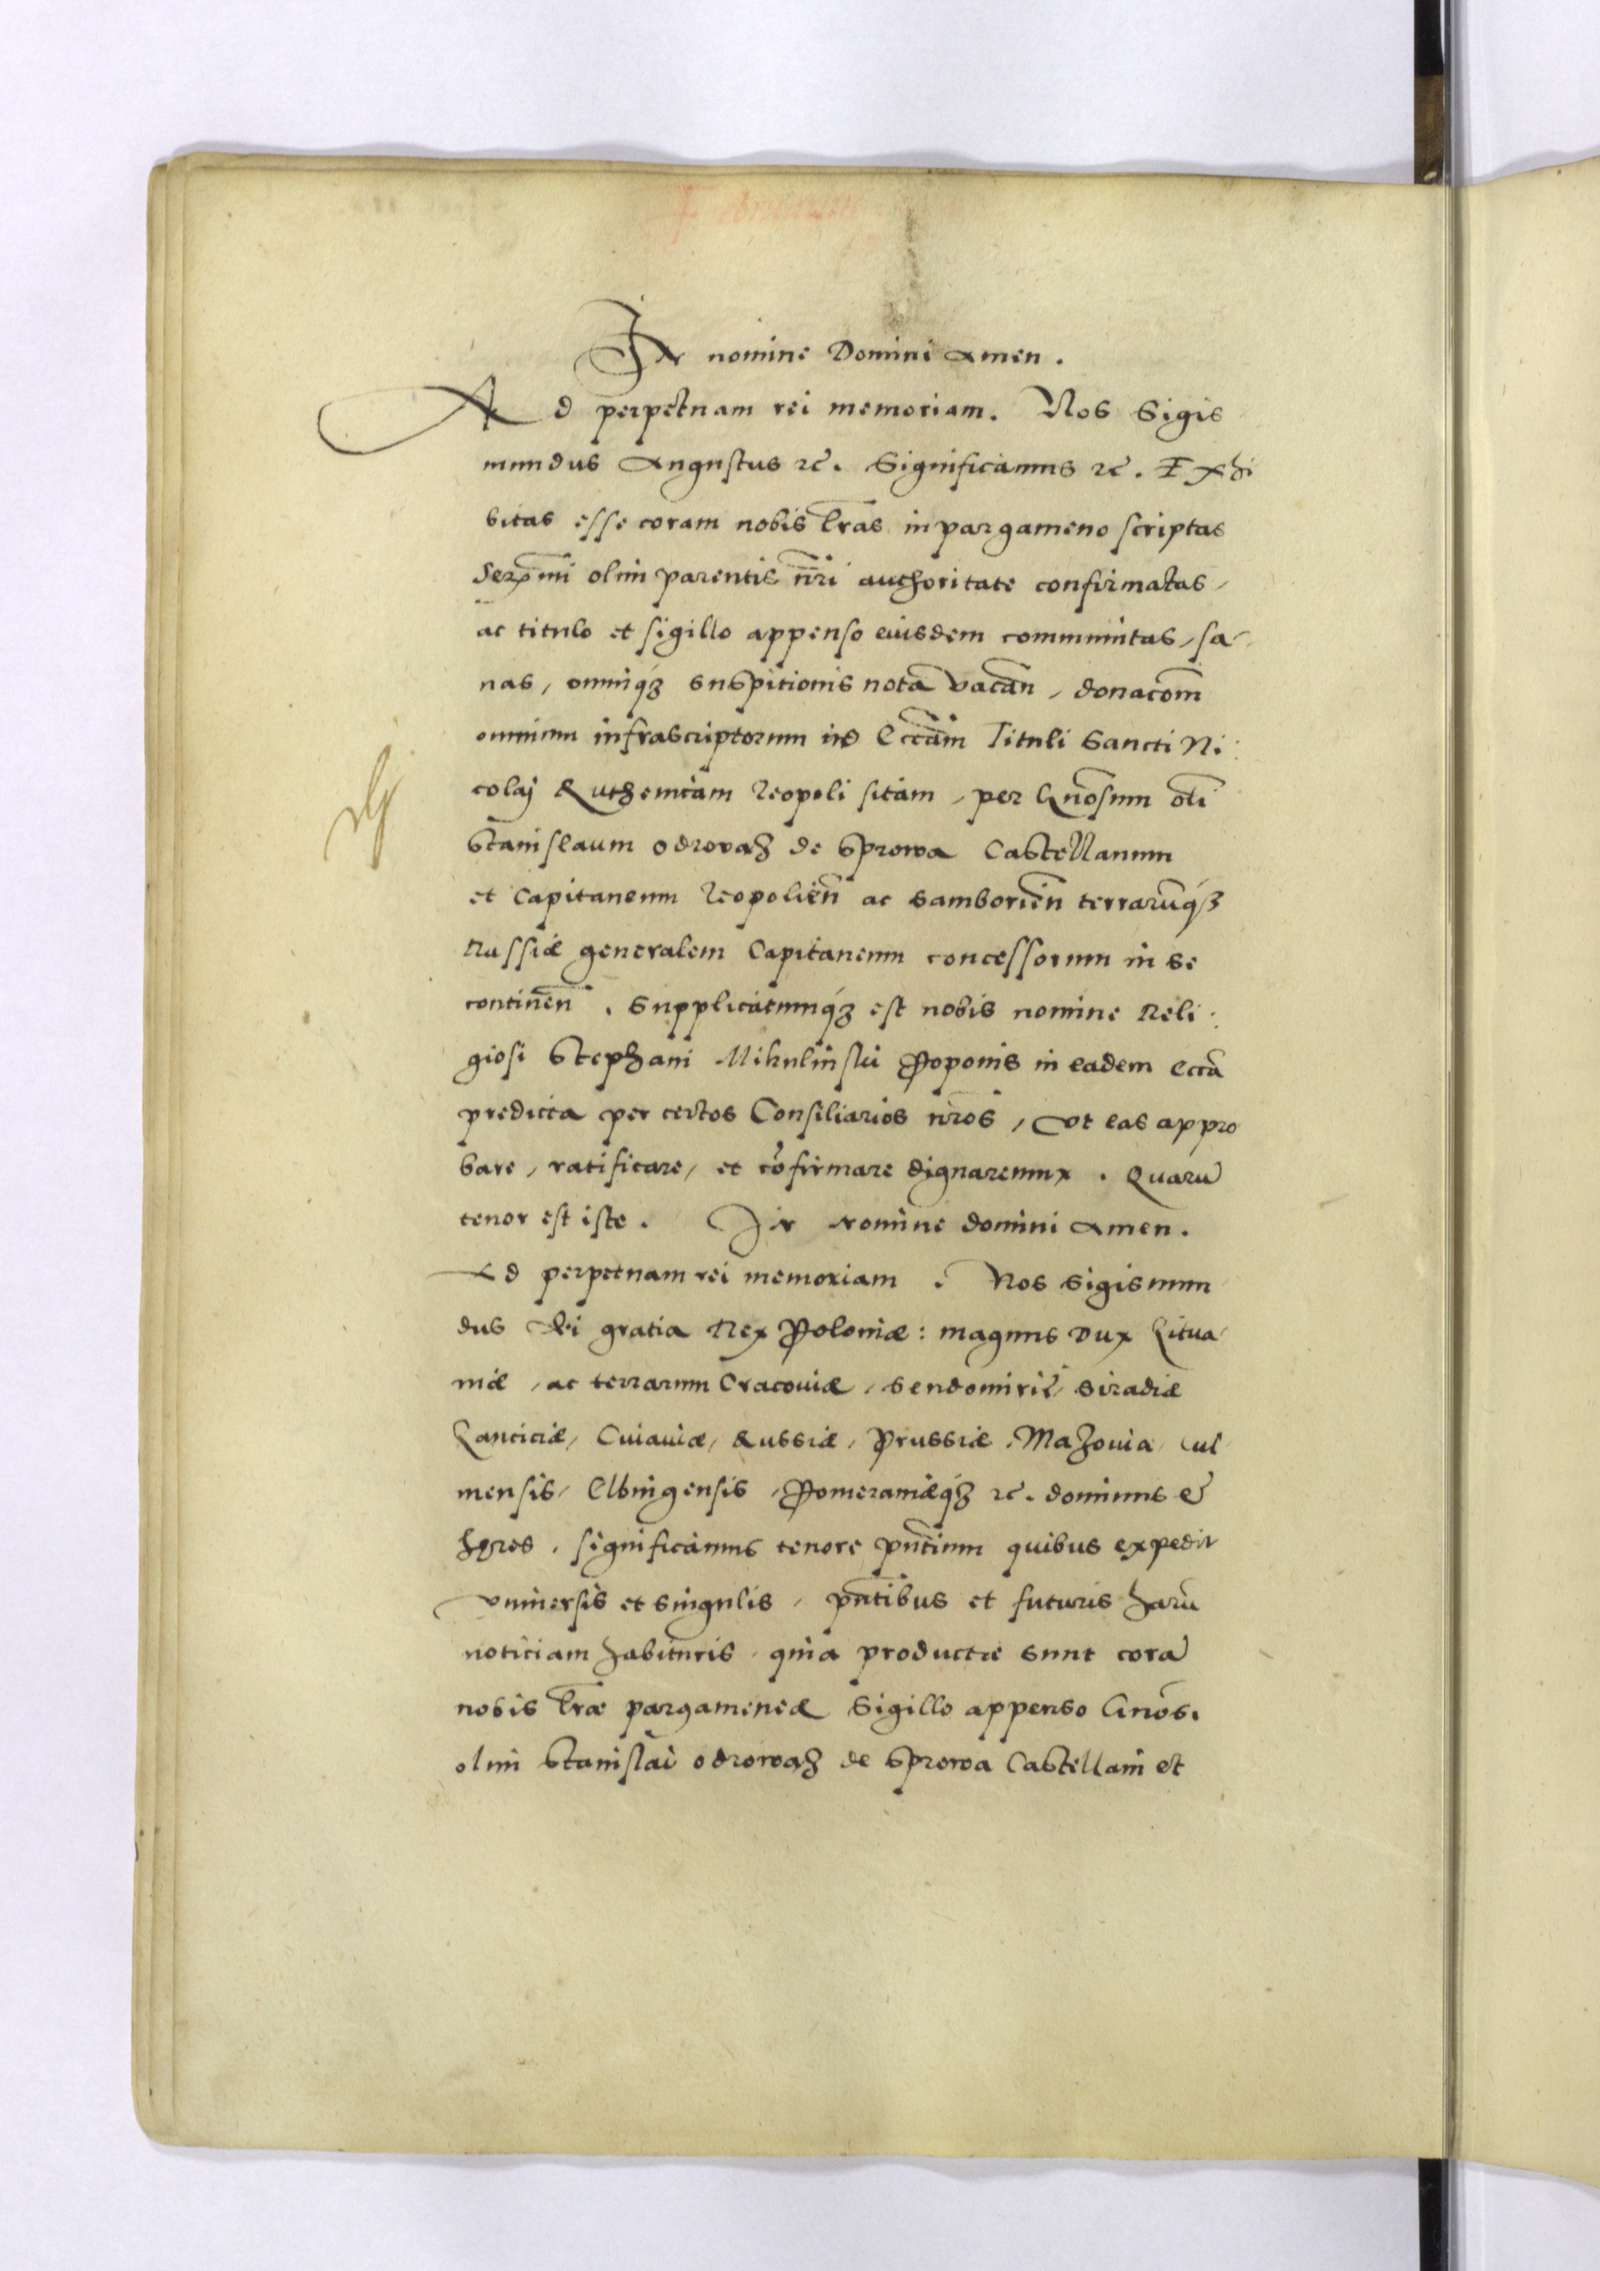 In nomine Domini Amen.
Ad perpetuam rei memoriam. Nos Sigis
mundus Augustus etc. Significamus etc. Exhi
bitas esse coram nobis lr̃as in pargameno scriptas
Serx̃mi olim parentis nr̃i authoritate confirmatas,
ac titulo et sigillo appenso eiusdem communitas, sa-
nas, omniq́ꝫ suspitionis nota vacan̄, donacõm
omnium infrascriptorum in Eccãm Tituli Sancti Ni:
colaj Ruthenicam Leopoli sitam, per Gnõsum oli
Stanislaum Odrovaz de Sprowa Castellanum
et Capitaneum Leopolien̄ ac Samborien̄ terrarũq́ꝫ
Russiæ generalem Capitaneum concessorum in se
continen̄. Supplicatumq́ꝫ est nobis nomine Reli:
giosi Stephani Mikulinski Poponis in eadem eccã
predicta per certos Consiliarios nr̃os, Vt eas appro
bare, ratificare, et cõfirmare dignaremur. Quarũ
tenor est iste. In Nomine domini Amen.
Ad perpetuam rei memoriam. Nos Sigismun
dus Dei gratia Rex Poloniæ: magnus Dux Litua
niæ, ac terrarum Cracoviæ, Sendomirie, Siradiæ
Lanciciæ, Cuiaviæ, Russiæ, Prussiæ, Mazovia, Cul
mensis, Elbingensis, Pomeraniæq́ꝫ etc. dominus et
hęres. significamus tenore pñtium quibus expedit
vniversis et singulis, pñtibus et futuris harũ
noticiam habituris, quia productæ sunt corã
nobis lr̃æ pargameneæ Sigillo appenso Gnõs.
olim Stanislai Odrowaz de Sprowa Castellani et